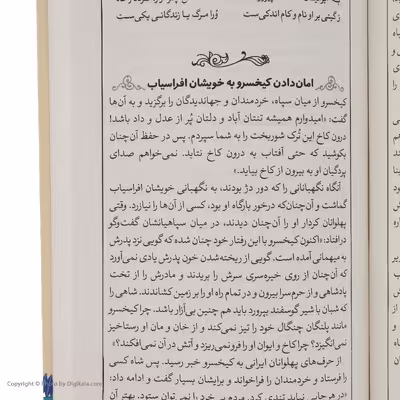 ز گیتی بر او نام و کام اندکی‌ست ورا مرگ با زندگانی یکی‌ست
امان‌دادن کیخسرو به خویشان افراسیاب
کیخسرو از میان سپاه، خردمندان و جهاندیدگان را برگزید و به آن‌ها
گفت: «امیدوارم همیشه تنتان آباد و دلتان پُر از عدل و داد باشد!
درون کاخ این تُرک شوربخت را به شما سپردم. پس در حفظ آن‌چنان
بکوشید که حتی آفتاب به درون کاخ نتابد. نمی‌خواهم صدای
پردگیان او به بیرون از کاخ بیاید.»
آنگاه نگهبانانی را که دور دژ بودند، به نگهبانی خویشان افراسیاب
گماشت و آن‌چنان‌که درخور بارگاه او بود، کسی از آن‌ها را نیازرد. وقتی
پهلوانان کردار او را آن‌چنان دیدند، در میان سپاهیانشان گفت‌وگو
درافتاد: «اکنون کیخسرو با این رفتار خود چنان شده که گویی نزد پدرش
به میهمانی آمده است. گویی از ریخته‌شدن خون پدرش یادی نمی‌آورد
که آن‌چنان از روی خیره‌سری سرش را بریدند و مادرش را از تخت
پادشاهی و از حرم‌سرا بیرون و در تمام راه او را بر زمین کشاندند. شاهی را
که شبان با شیر گوسفند بپرورد باید هم چنین بی‌آزار باشد. چرا کیخسرو
مانند پلنگان چنگال خود را تیز نمی‌کند و از خان و مان او رستاخیز
نمی‌انگیزد؟ چرا کاخ و ایوان او را فرو نمی‌ریزد و آتش در آن نمی‌افکند؟»
از حرف‌های پهلوانان ایرانی به کیخسرو خبر رسید. پس شاه کسی
را فرستاد و خردمندان را فراخواند و برایشان بسیار گفت و ادامه داد:
«در هر جایی نباید تندی کرد. مردم بی‌خرد را نمی‌توان ستود. بهتر آن